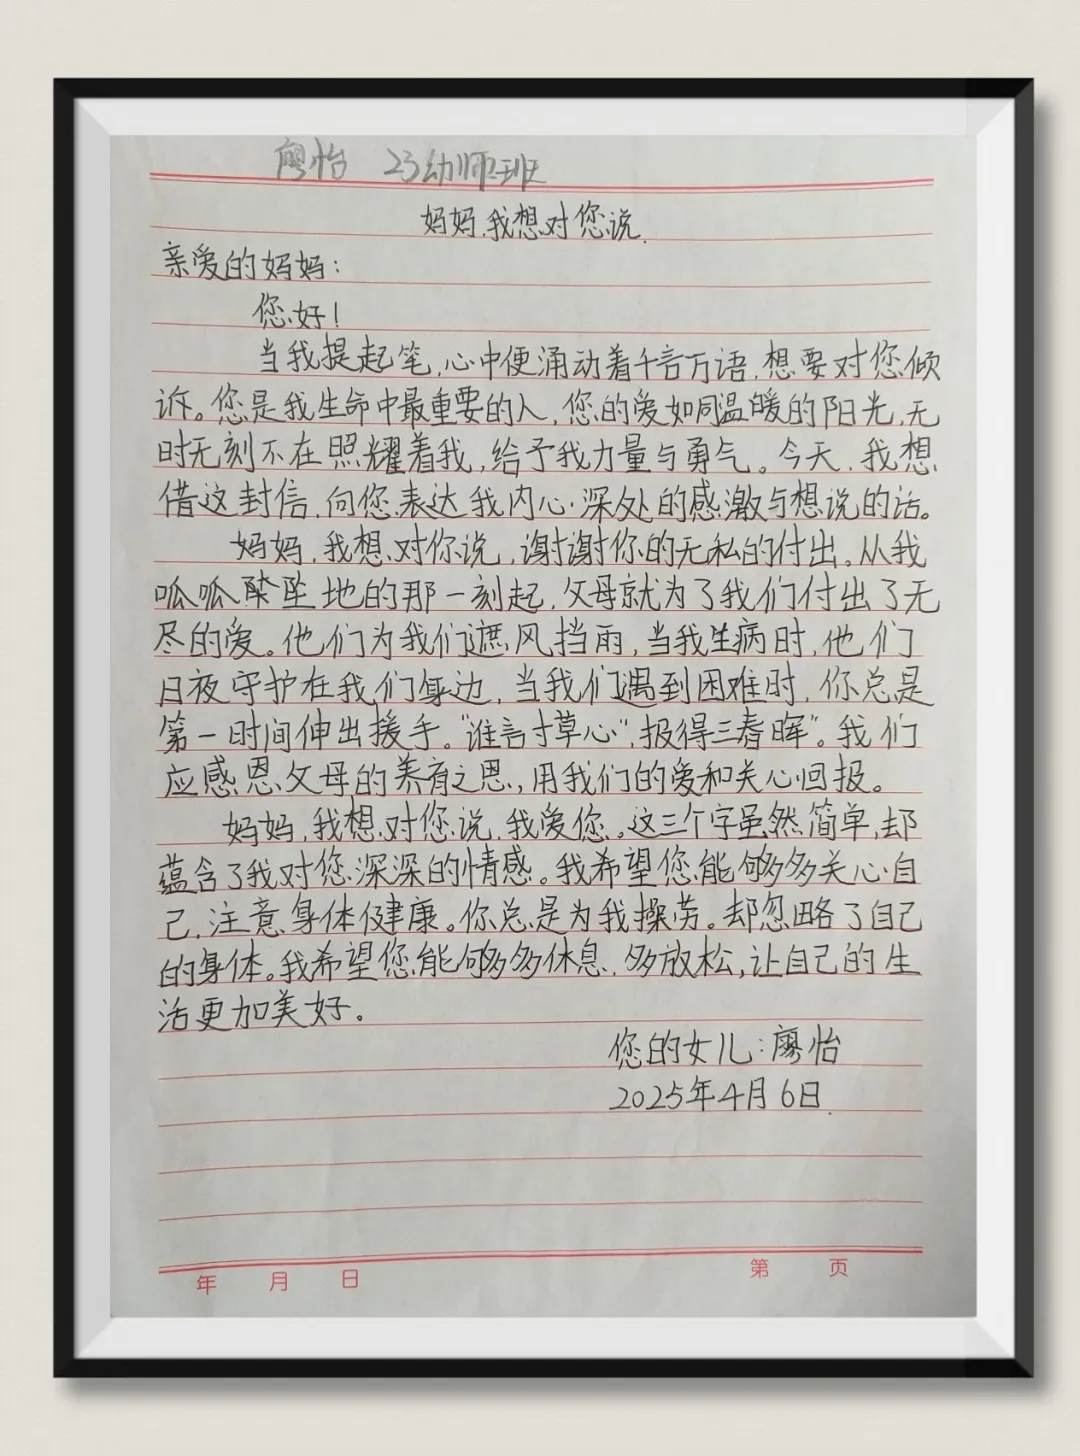 廖怡 23幼师班
妈妈,我想对您说.
亲爱的妈妈:
您好!
当我提起笔,心中便涌动着千言万语,想要对您倾
诉。您是我生命中最重要的人,您的爱如同温暖的阳光,无
时无刻不在照耀着我,给予我力量与勇气。今天,我想
借这封信,向您表达我内心深处的感激与想说的话。
妈妈,我想对你说,谢谢你的无私的付出。从我
呱呱坠地的那一刻起,父母就为了我们付出了无
尽的爱。他们为我们遮风挡雨,当我生病时,他们
日夜守护在我们身边,当我们遇到困难时,你总是
第一时间伸出援手。"谁言寸草心",报得三春晖"。我们
应感恩父母的养育之恩,用我们的爱和关心回报。
妈妈,我想对您说,我爱您。这三个字虽然简单,却
蕴含了我对您深深的情感。我希望您能够多多关心自
己,注意身体健康。你总是为我操劳。却忽略了自己
的身体。我希望您能够多多休息,多放松,让自己的生
活更加美好。
您的女儿:廖怡
2025年4月6日.
年 月 日 第 页